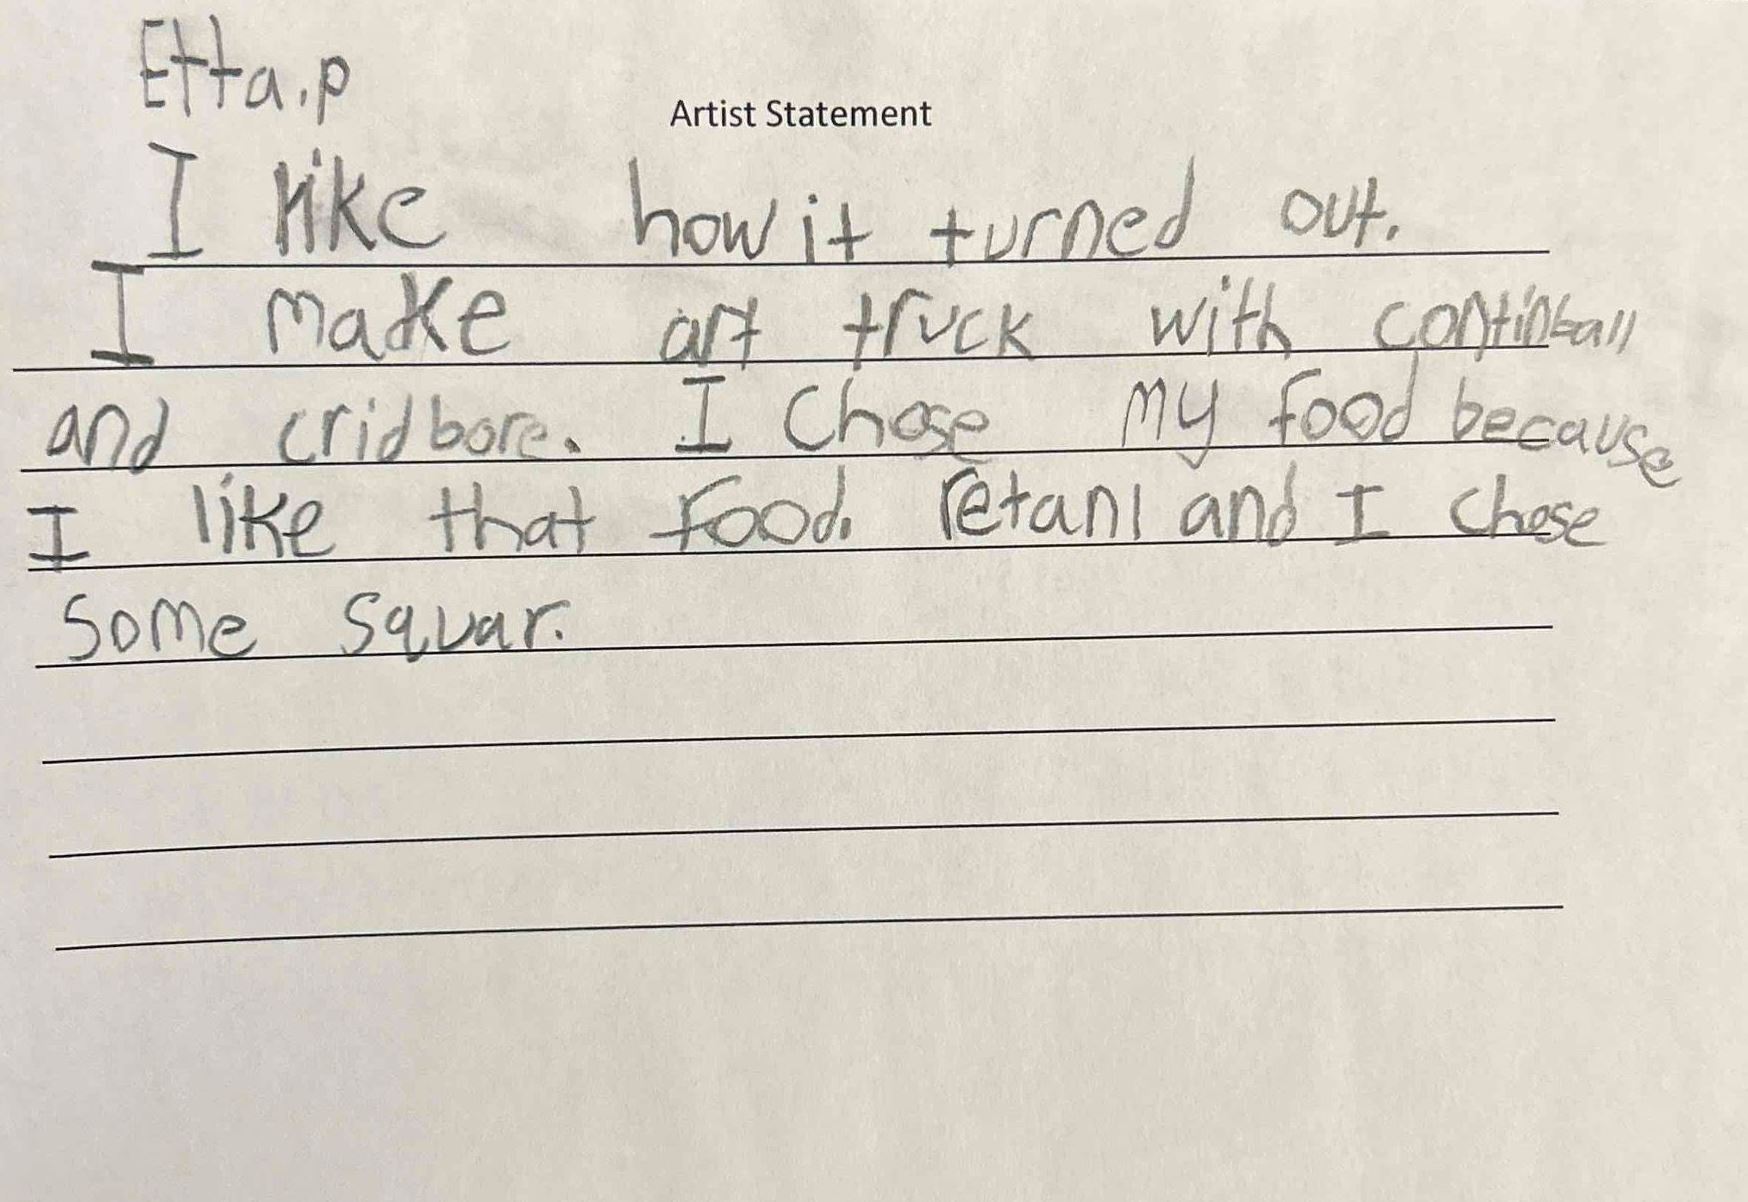 Etta.p
Artist Statement
I like how it turned out.
I make art truck with continball
and cridbore. I chose my food because
I like that food. retanl and I chose
some squar.